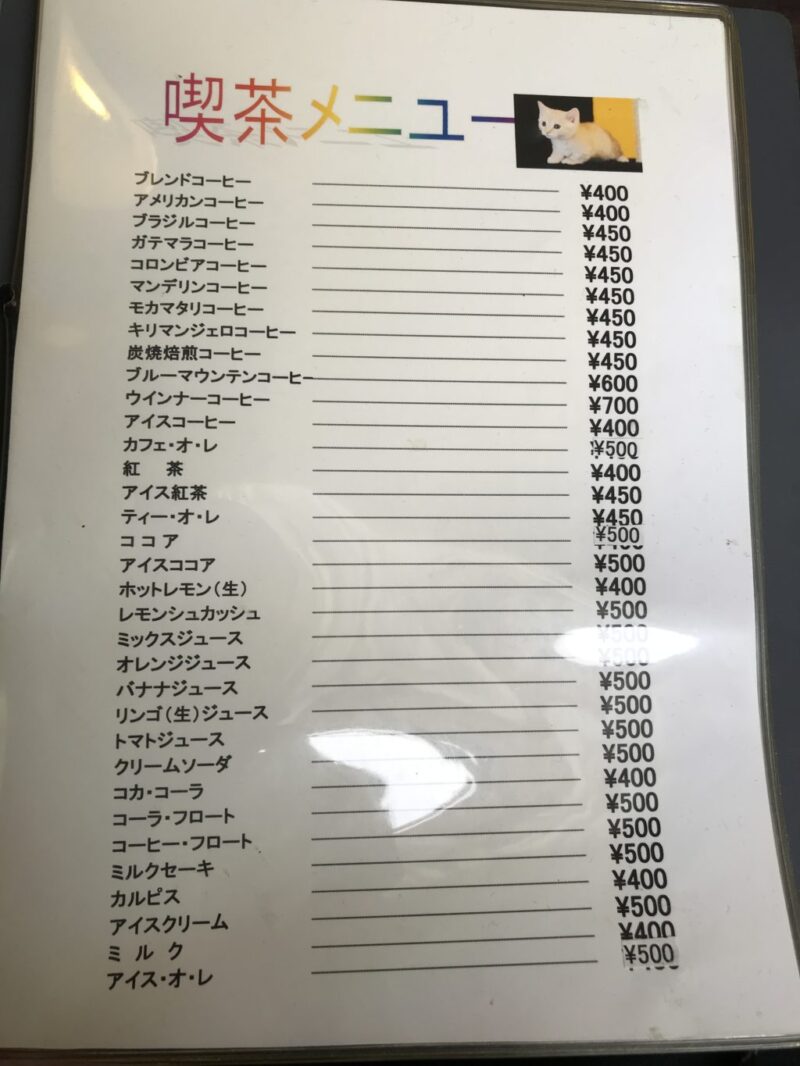 喫茶メニュー
ブレンドコーヒー ¥400
アメリカンコーヒー ¥400
ブラジルコーヒー ¥450
ガテマラコーヒー ¥450
コロンビアコーヒー ¥450
マンデリンコーヒー ¥450
モカマタリコーヒー ¥450
キリマンジェロコーヒー ¥450
炭焼焙煎コーヒー ¥450
ブルーマウンテンコーヒー ¥600
ウインナーコーヒー ¥700
アイスコーヒー ¥400
カフェ・オ・レ ¥500
紅 茶 ¥400
アイス紅茶 ¥450
ティー・オ・レ ¥450
コ コ ア ¥500
アイスココア ¥500
ホットレモン(生) ¥400
レモンシュカッシュ ¥500
ミックスジュース ¥500
オレンジジュース ¥500
バナナジュース ¥500
リンゴ(生)ジュース ¥500
トマトジュース ¥500
クリームソーダ ¥500
コカ・コーラ ¥400
コーラ・フロート ¥500
コーヒー・フロート ¥500
ミルクセーキ ¥500
カルピス ¥400
アイスクリーム ¥500
ミ ル ク ¥400
アイス・オ・レ ¥500